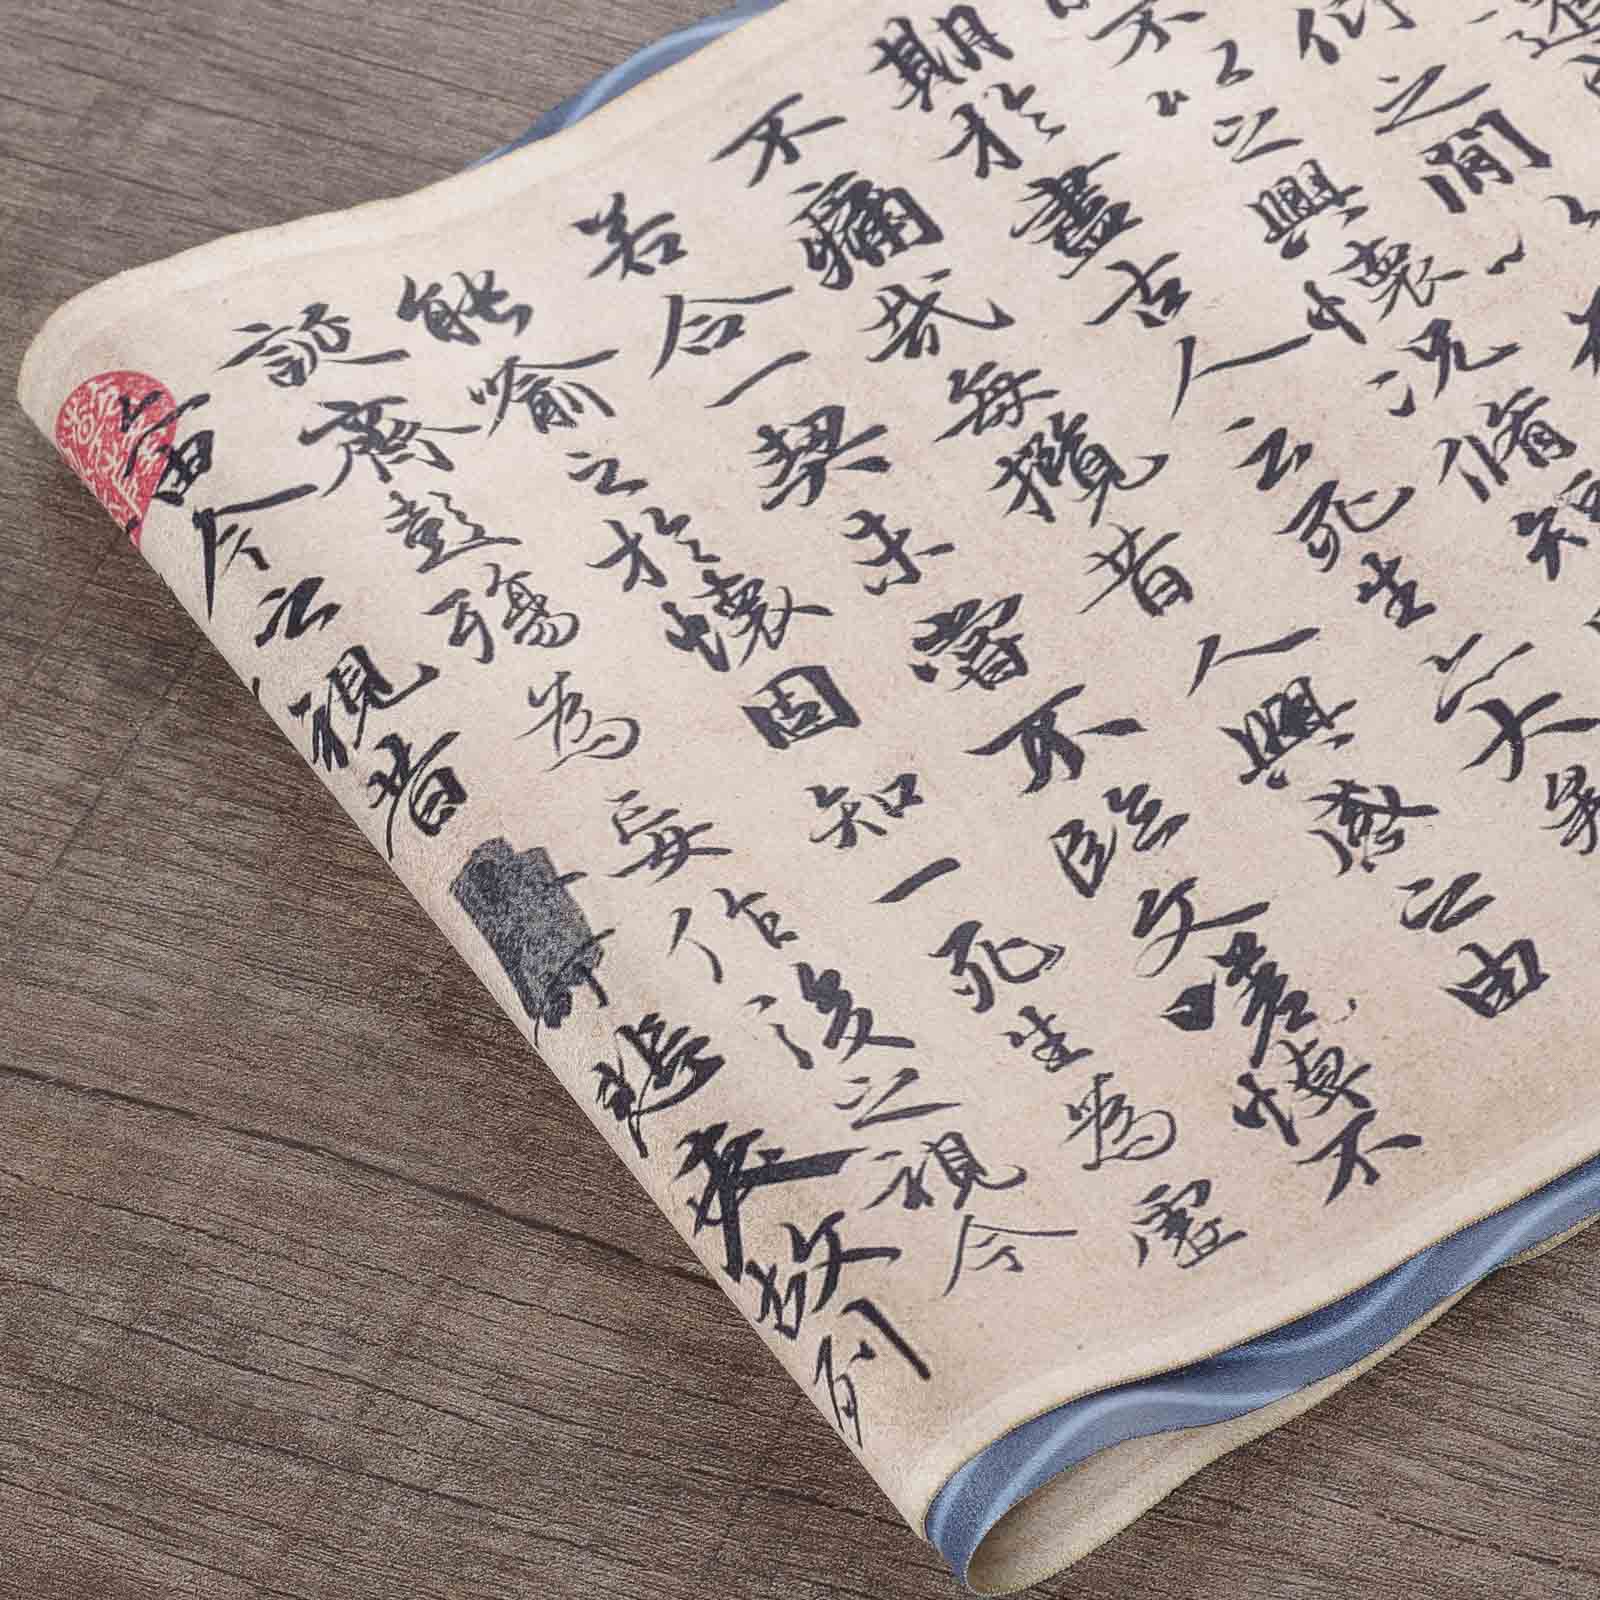 仰之間
不以之興懷況脩短
期於盡古人云死生亦大矣
不痛哉每攬昔人興感之由
若合一契未嘗不臨文嗟悼不
能喻之於懷固知一死生為虛
誕齊彭殤為妄作後之視今
亦由今之視昔悲夫故列